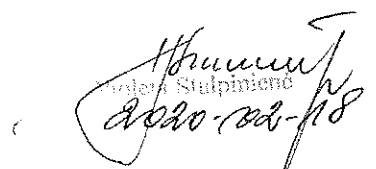 Violeta Stulpinienė
2020-02-18